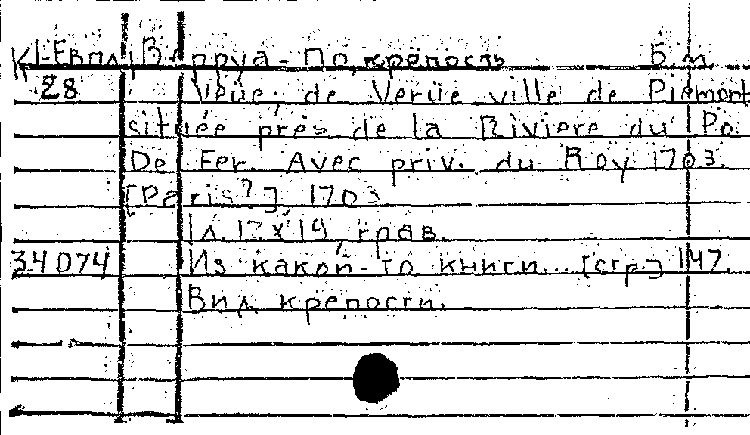 К1-Евпл Верруа-По, крепость Б.м.
28 Veüe, de Verüe ville de Piemont
située près de la Riviere du Po.
De Fer. Avec priv. du Roy 1703.
[Paris?], 1703.
1л. 12x19, грав.
34074 Из какой-то книги... [стр.] 147.
Вид крепости.